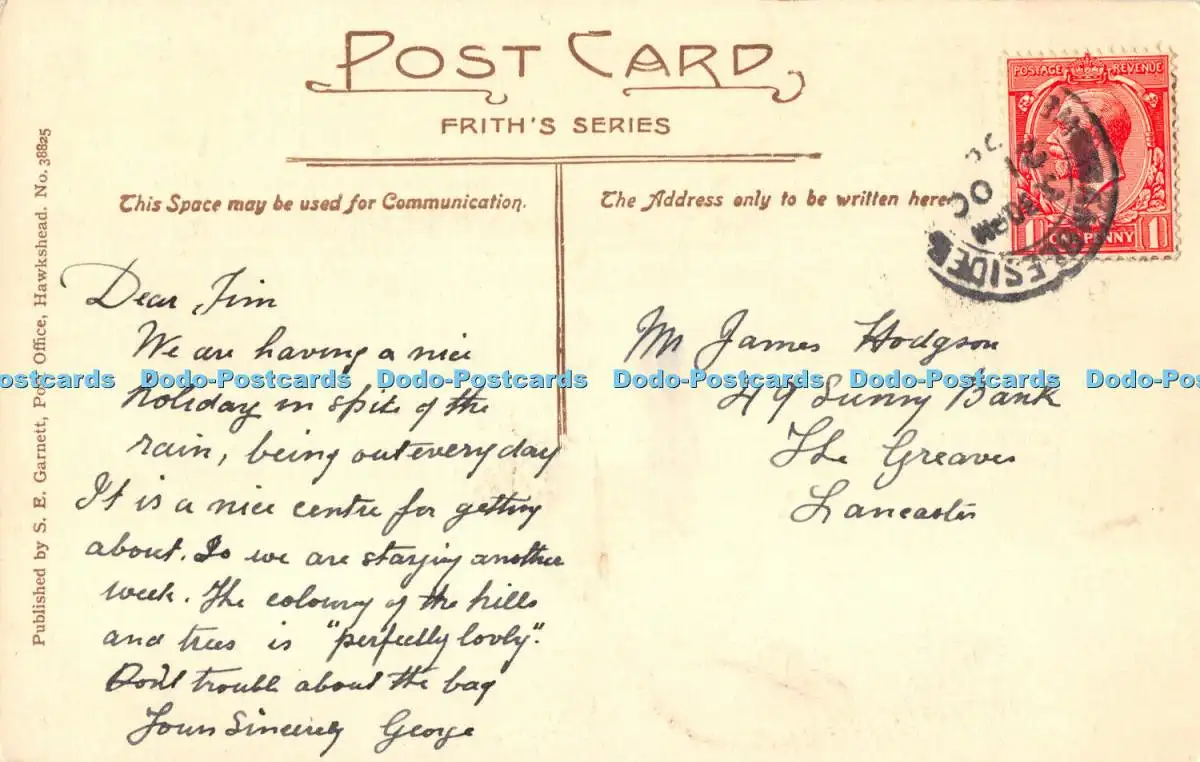 POST CARD
FRITH'S SERIES
This Space may be used for Communication.
The Address only to be written here
POSTAGE REVENUE
1 ONE PENNY 1
AMBLESIDE
30 AM
21 OC
Published by S. E. Garnett, Post Office, Hawkshead. No. 38825
Dear Jim
We are having a nice
holiday in spite of the
rain, being out every day
It is a nice centre for getting
about. So we are staying another
week. The colouring of the hills
and trees is "perfectly lovly".
Don't trouble about the bag
Yours Sincerely George
Mr James Hodgson
49 Sunny Bank
The Greaves
Lancaster
ostcards Dodo-Postcards Dodo-Postcards Dodo-Postcards Dodo-Postcards Dodo-Post